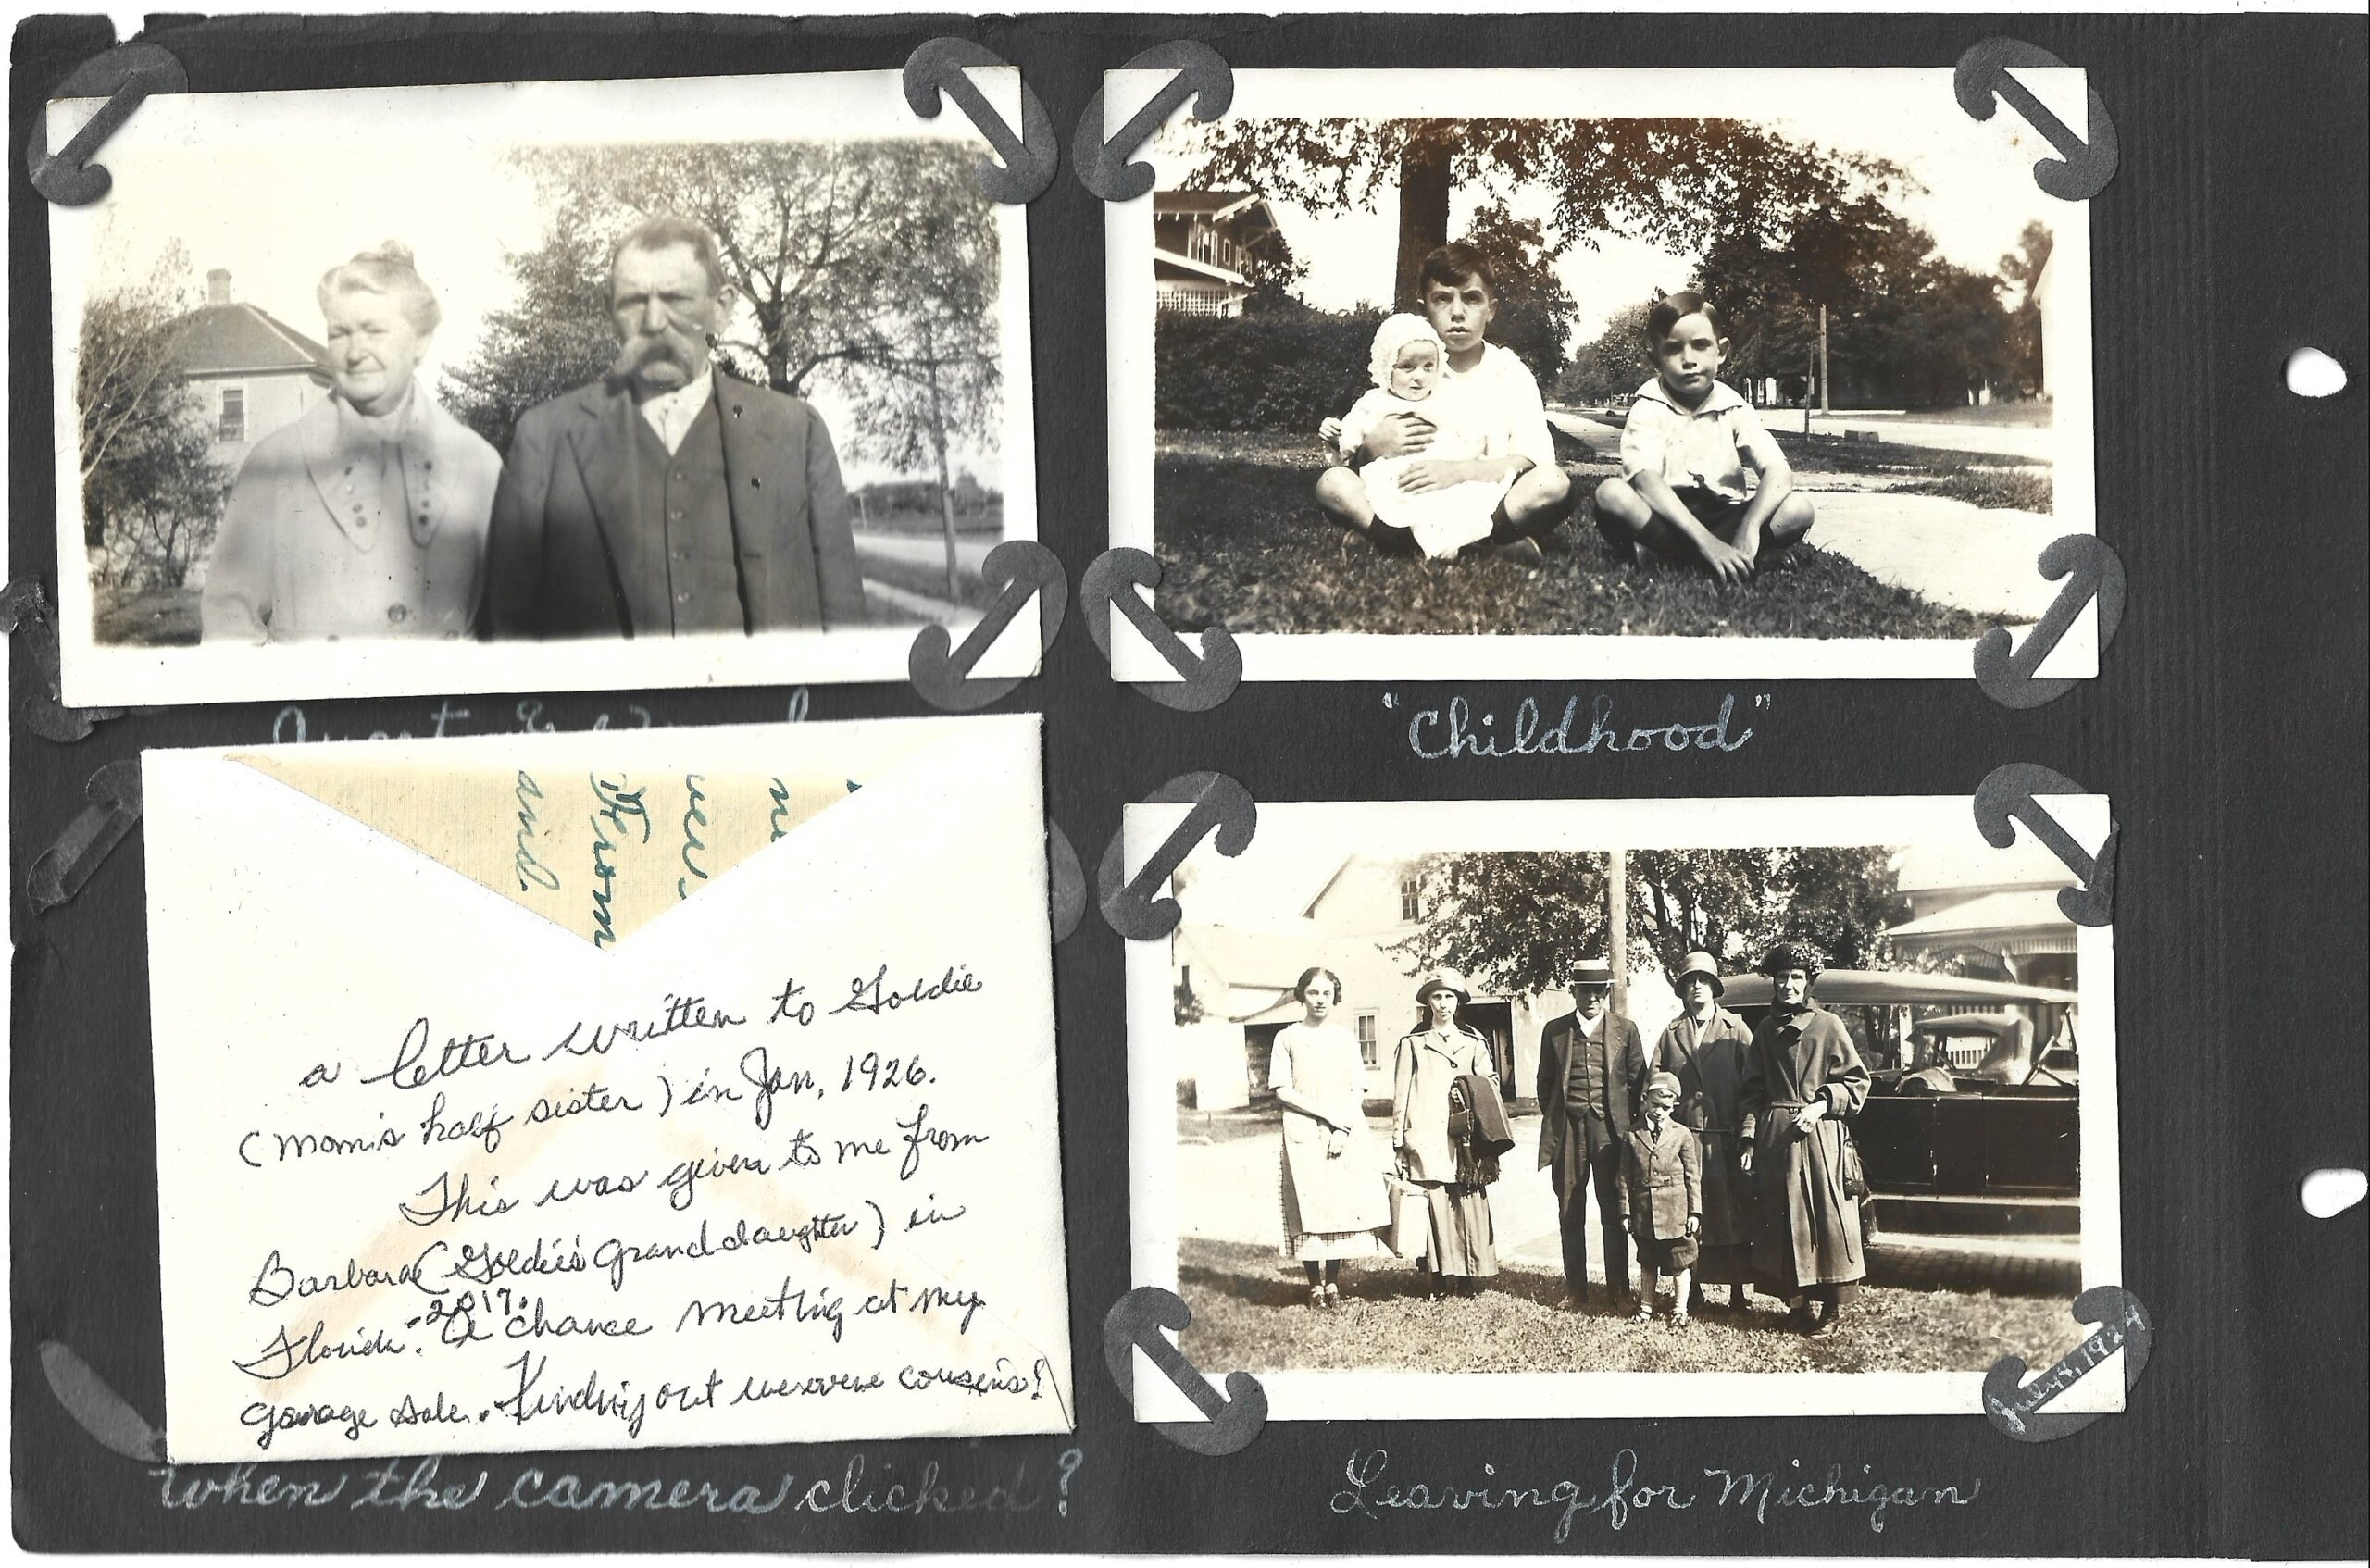 "Childhood"
and
From
a letter written to Goldie
(Mom's half sister) in Jan, 1926.
This was given to me from
Barbara (Goldie's Granddaughter) in
Florida - 2017. a chance meeting at my
garage sale. Finding out we were cousins!
When the camera clicked?
July 4, 1924
Leaving for Michigan